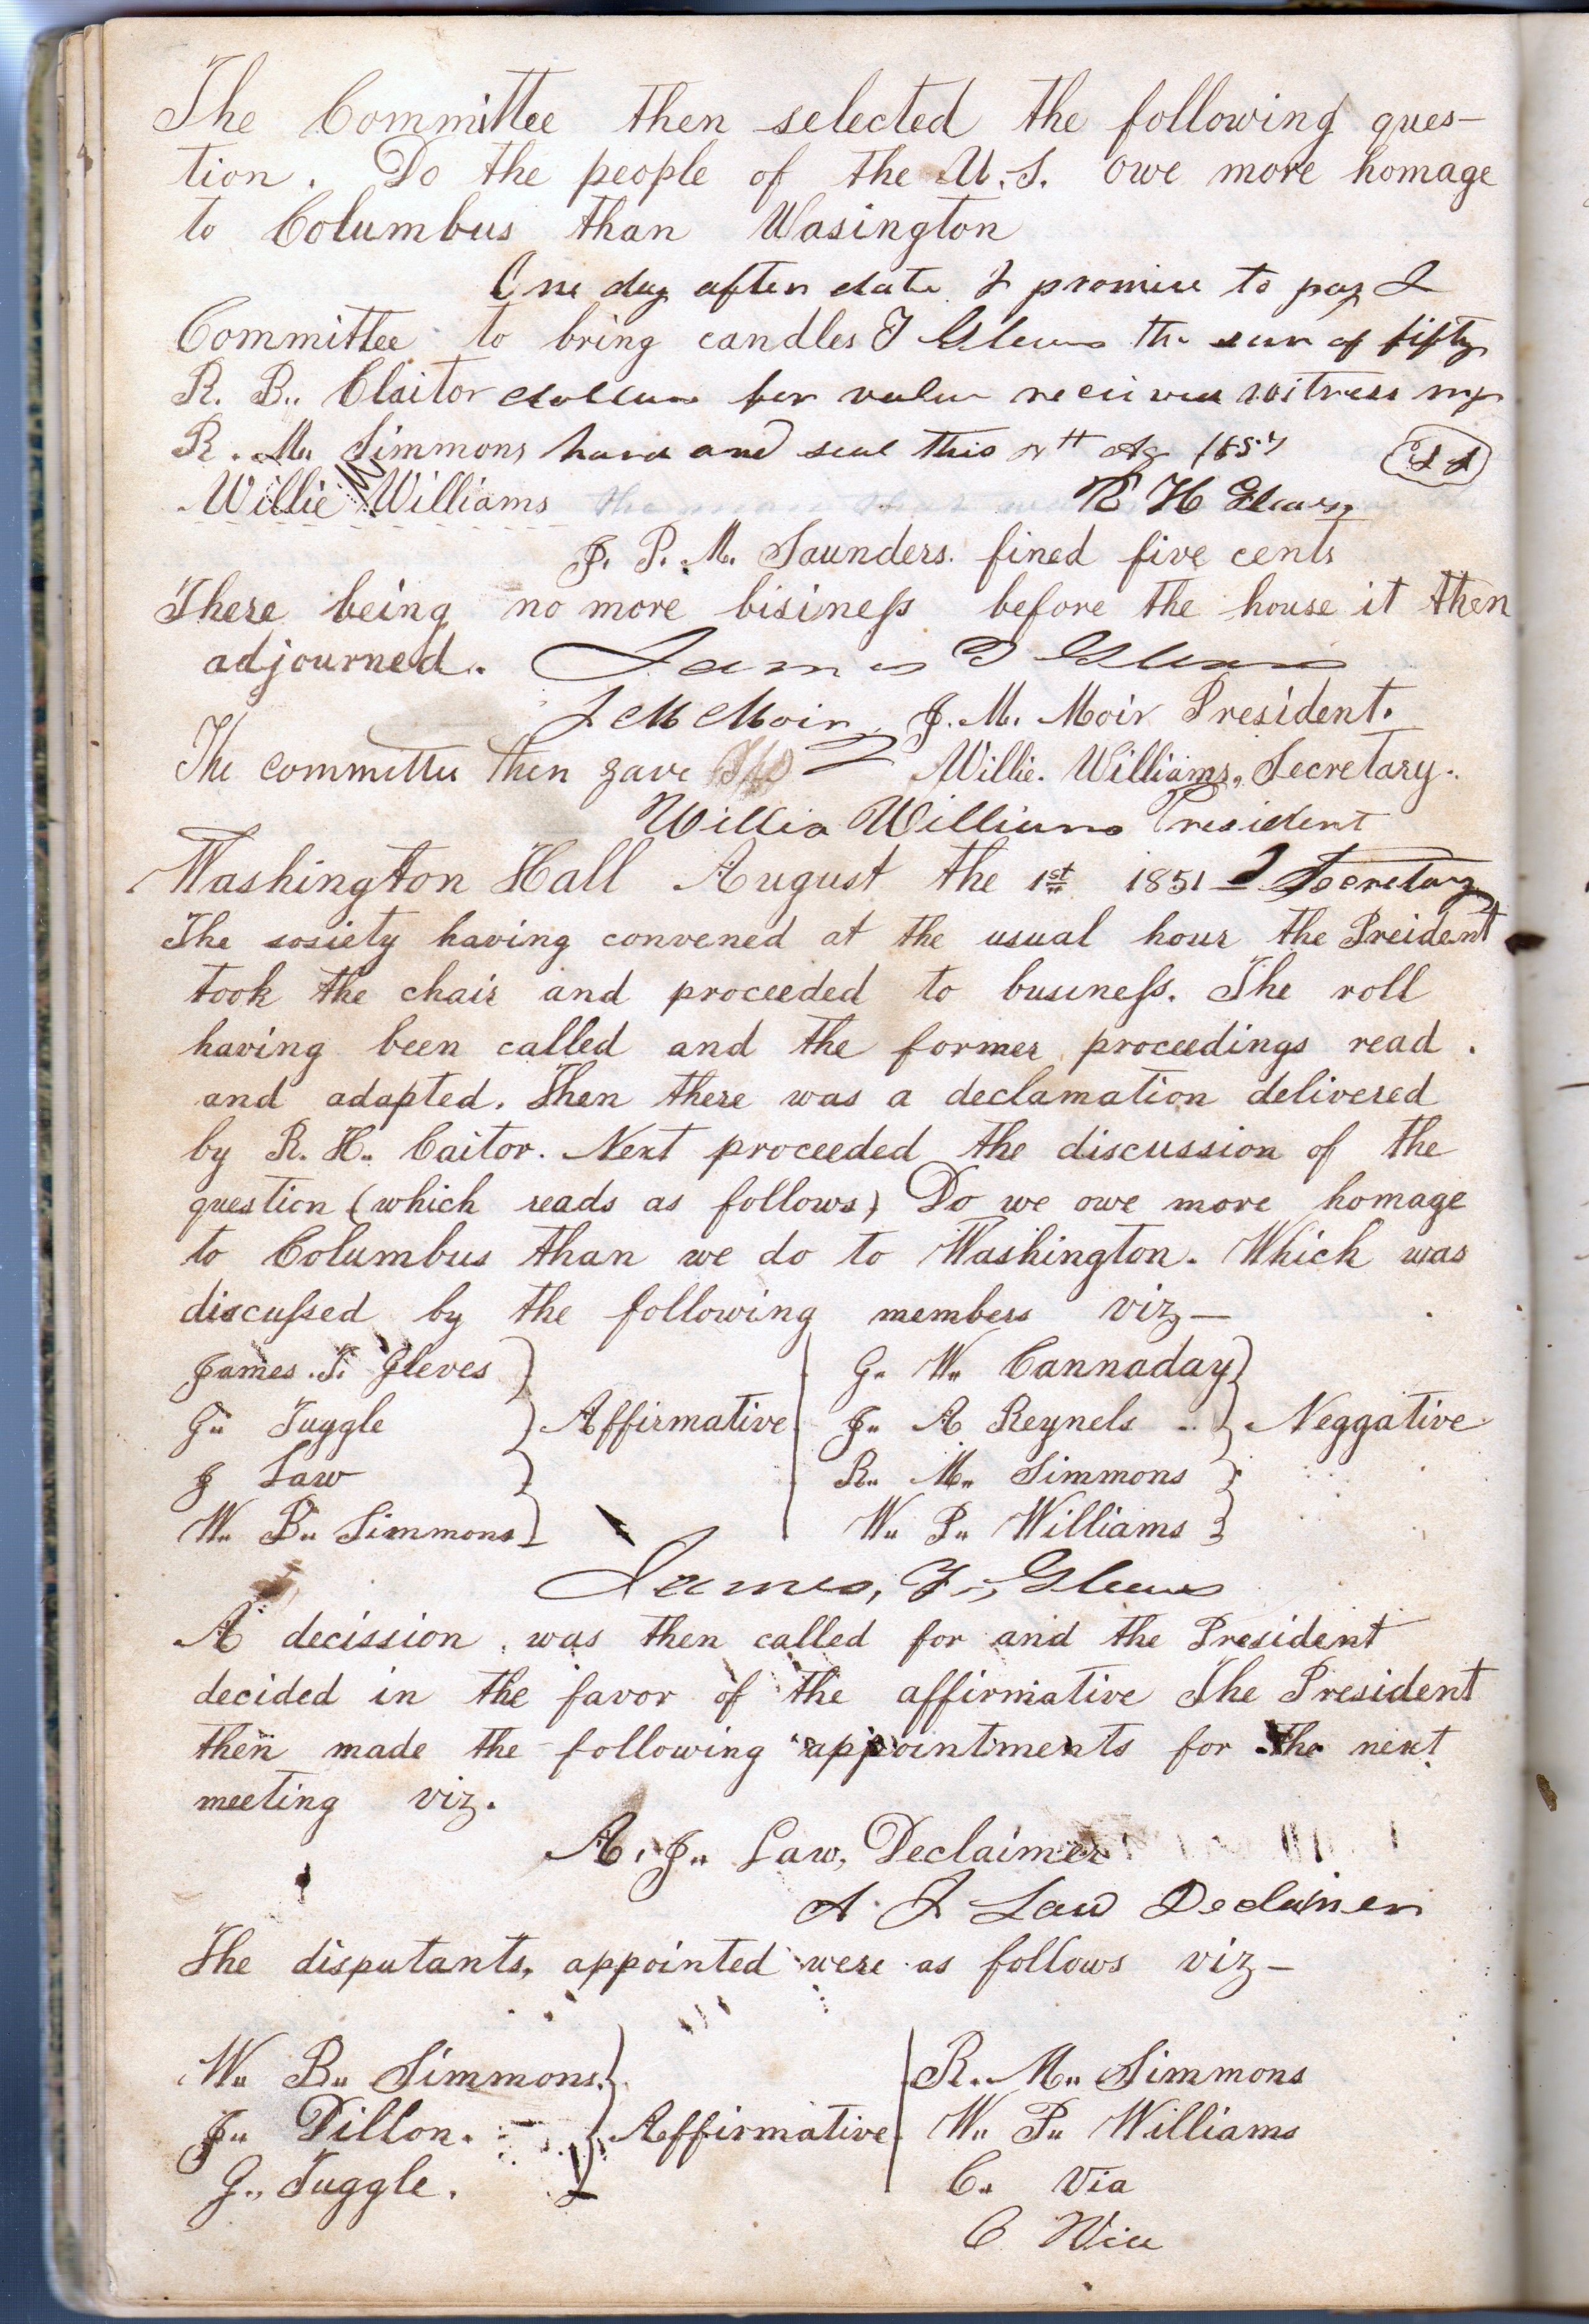 The Committee then selected the following ques-
tion. Do the people of the U.S. owe more homage
to Columbus than Wasington
One day after date I promise to pay J
Committee to bring candles T Gleaves the sum of fifty
R. B. Claitor dollars for value received witness my
R. M. Simmons hand and seal this
Willie Williams E H Gleaves
J. P. M. Saunders. fined five cents
There being no more bisiness before the house it then
adjourned. James T Gleaves
J M Moir J. M. Moir President.
The committee then gave Willie. Williams, Secretary.
Willia Williams President
Washington Hall August the 1st 1851 Secretary
The sosiety having convened at the usual hour the Preident
took the chair and proceeded to business. The roll
having been called and the former proceedings read.
and adapted. Then there was a declamation delivered
by R. H. Caitor. Next proceeded the discussion of the
question (which reads as follows) Do we owe more homage
to Columbus than we do to Washington. Which was
discussed by the following members viz—
James. T. Gleves } G. W. Cannaday }
G. Tuggle } Affirmative J. A Reynels } Neggative
J Law } R. M. Simmons }
W. B. Simmons } W. P. Williams }
James, T., Gleaves
A decission was then called for and the President
decided in the favor of the affirmative The President
then made the following appointments for the next
meeting viz.
A. J. Law, Declaimer
A. J Law Declaimer
The disputants, appointed were as follows viz—
W. B. Simmons. } R. M. Simmons
J. Dillon. } Affirmative W. P. Williams
G. Tuggle. } C. Via
C Via